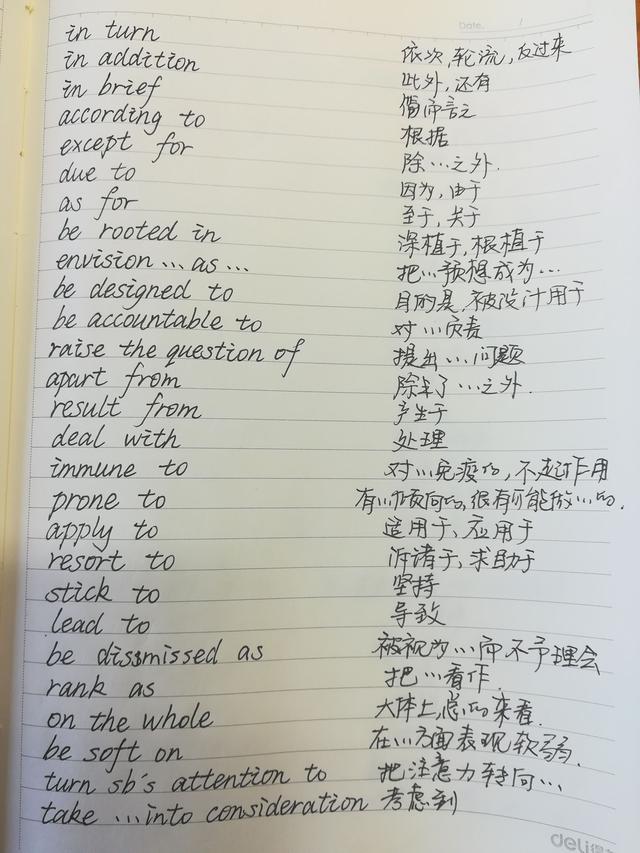 Date.
in turn 依次,轮流,反过来
in addition 此外,还有
in brief 简而言之
according to 根据
except for 除…之外.
due to 因为,由于
as for 至于,关于
be rooted in 深植于,根植于
envision ... as ... 把…预想成为…
be designed to 目的是,被设计用于
be accountable to 对…负责
raise the question of 提出…问题
apart from 除了…之外.
result from 产生于
deal with 处理
immune to 对…免疫的,不起作用
prone to 有…倾向的,很有可能做…的.
apply to 适用于、应用于
resort to 诉诸于,求助于
stick to 坚持
lead to 导致
be dissmissed as 被视为…而不予理会
rank as 把…看作.
on the whole 大体上,总的来看.
be soft on 在…方面表现软弱.
turn sb's attention to 把注意力转向…
take ...into consideration 考虑到
deli得力